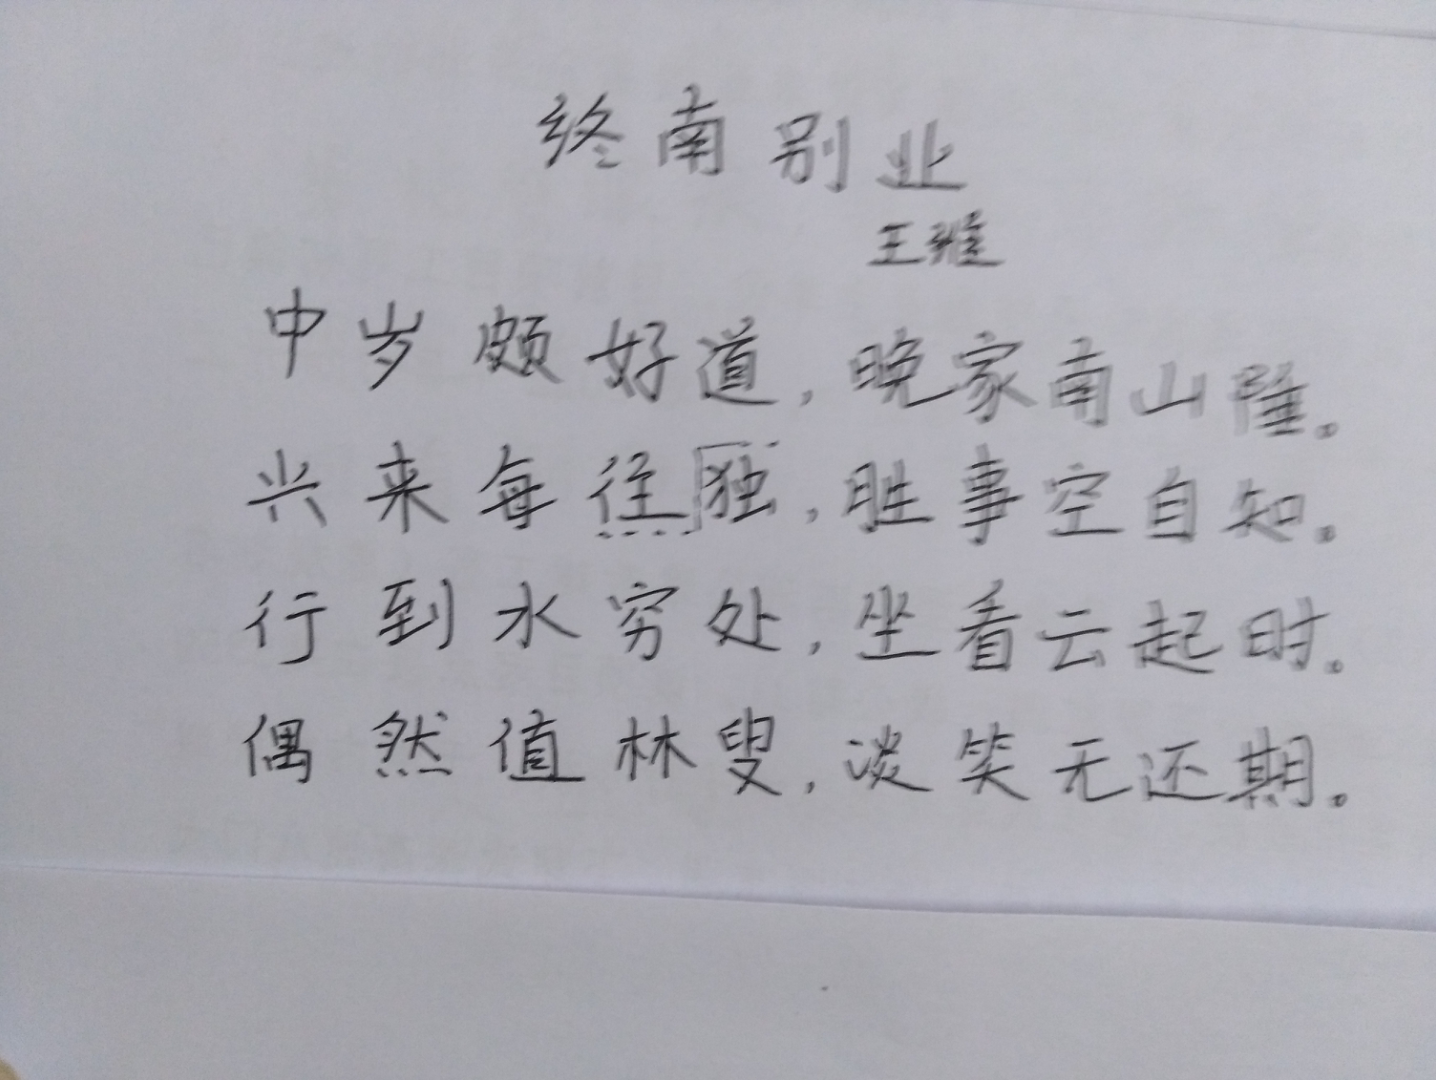 终南别业
王维
中岁颇好道，晚家南山陲。
兴来每往独，胜事空自知。
行到水穷处，坐看云起时。
偶然值林叟，淡笑无还期。